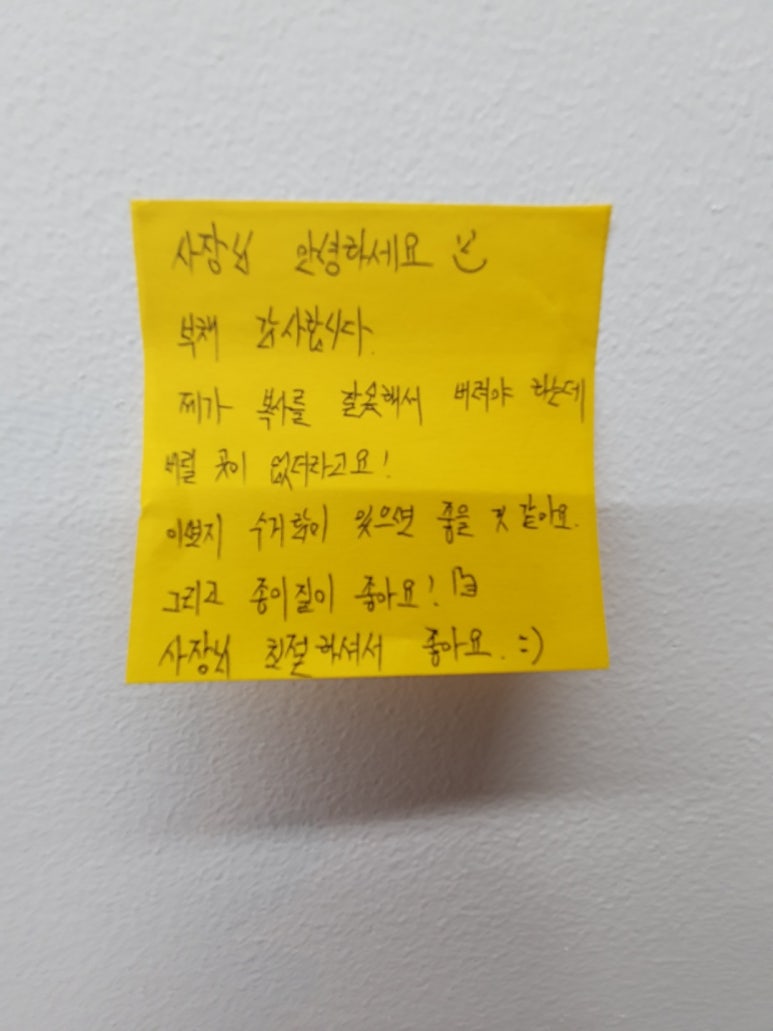 사장님 안녕하세요
부채 감사합니다.
제가 복사를 잘못해서 버려야 하는데
버릴 곳이 없더라고요!
이면지 수거함이 있으면 좋을 것 같아요.
그리고 종이질이 좋아요!
사장님 친절하셔서 좋아요. :)